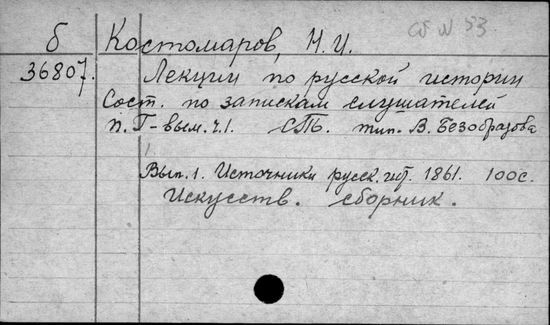 сб N 53
б Костомаров, Н.И.
36807. Лекции по русской истории
Сост. по запискам слушателей
П. Г-вым. ч.1. СПб. тип. В. Безобразова
1.
Вып. 1. Источники русск. ист. 1861. 100с.
Искусств. сборник.